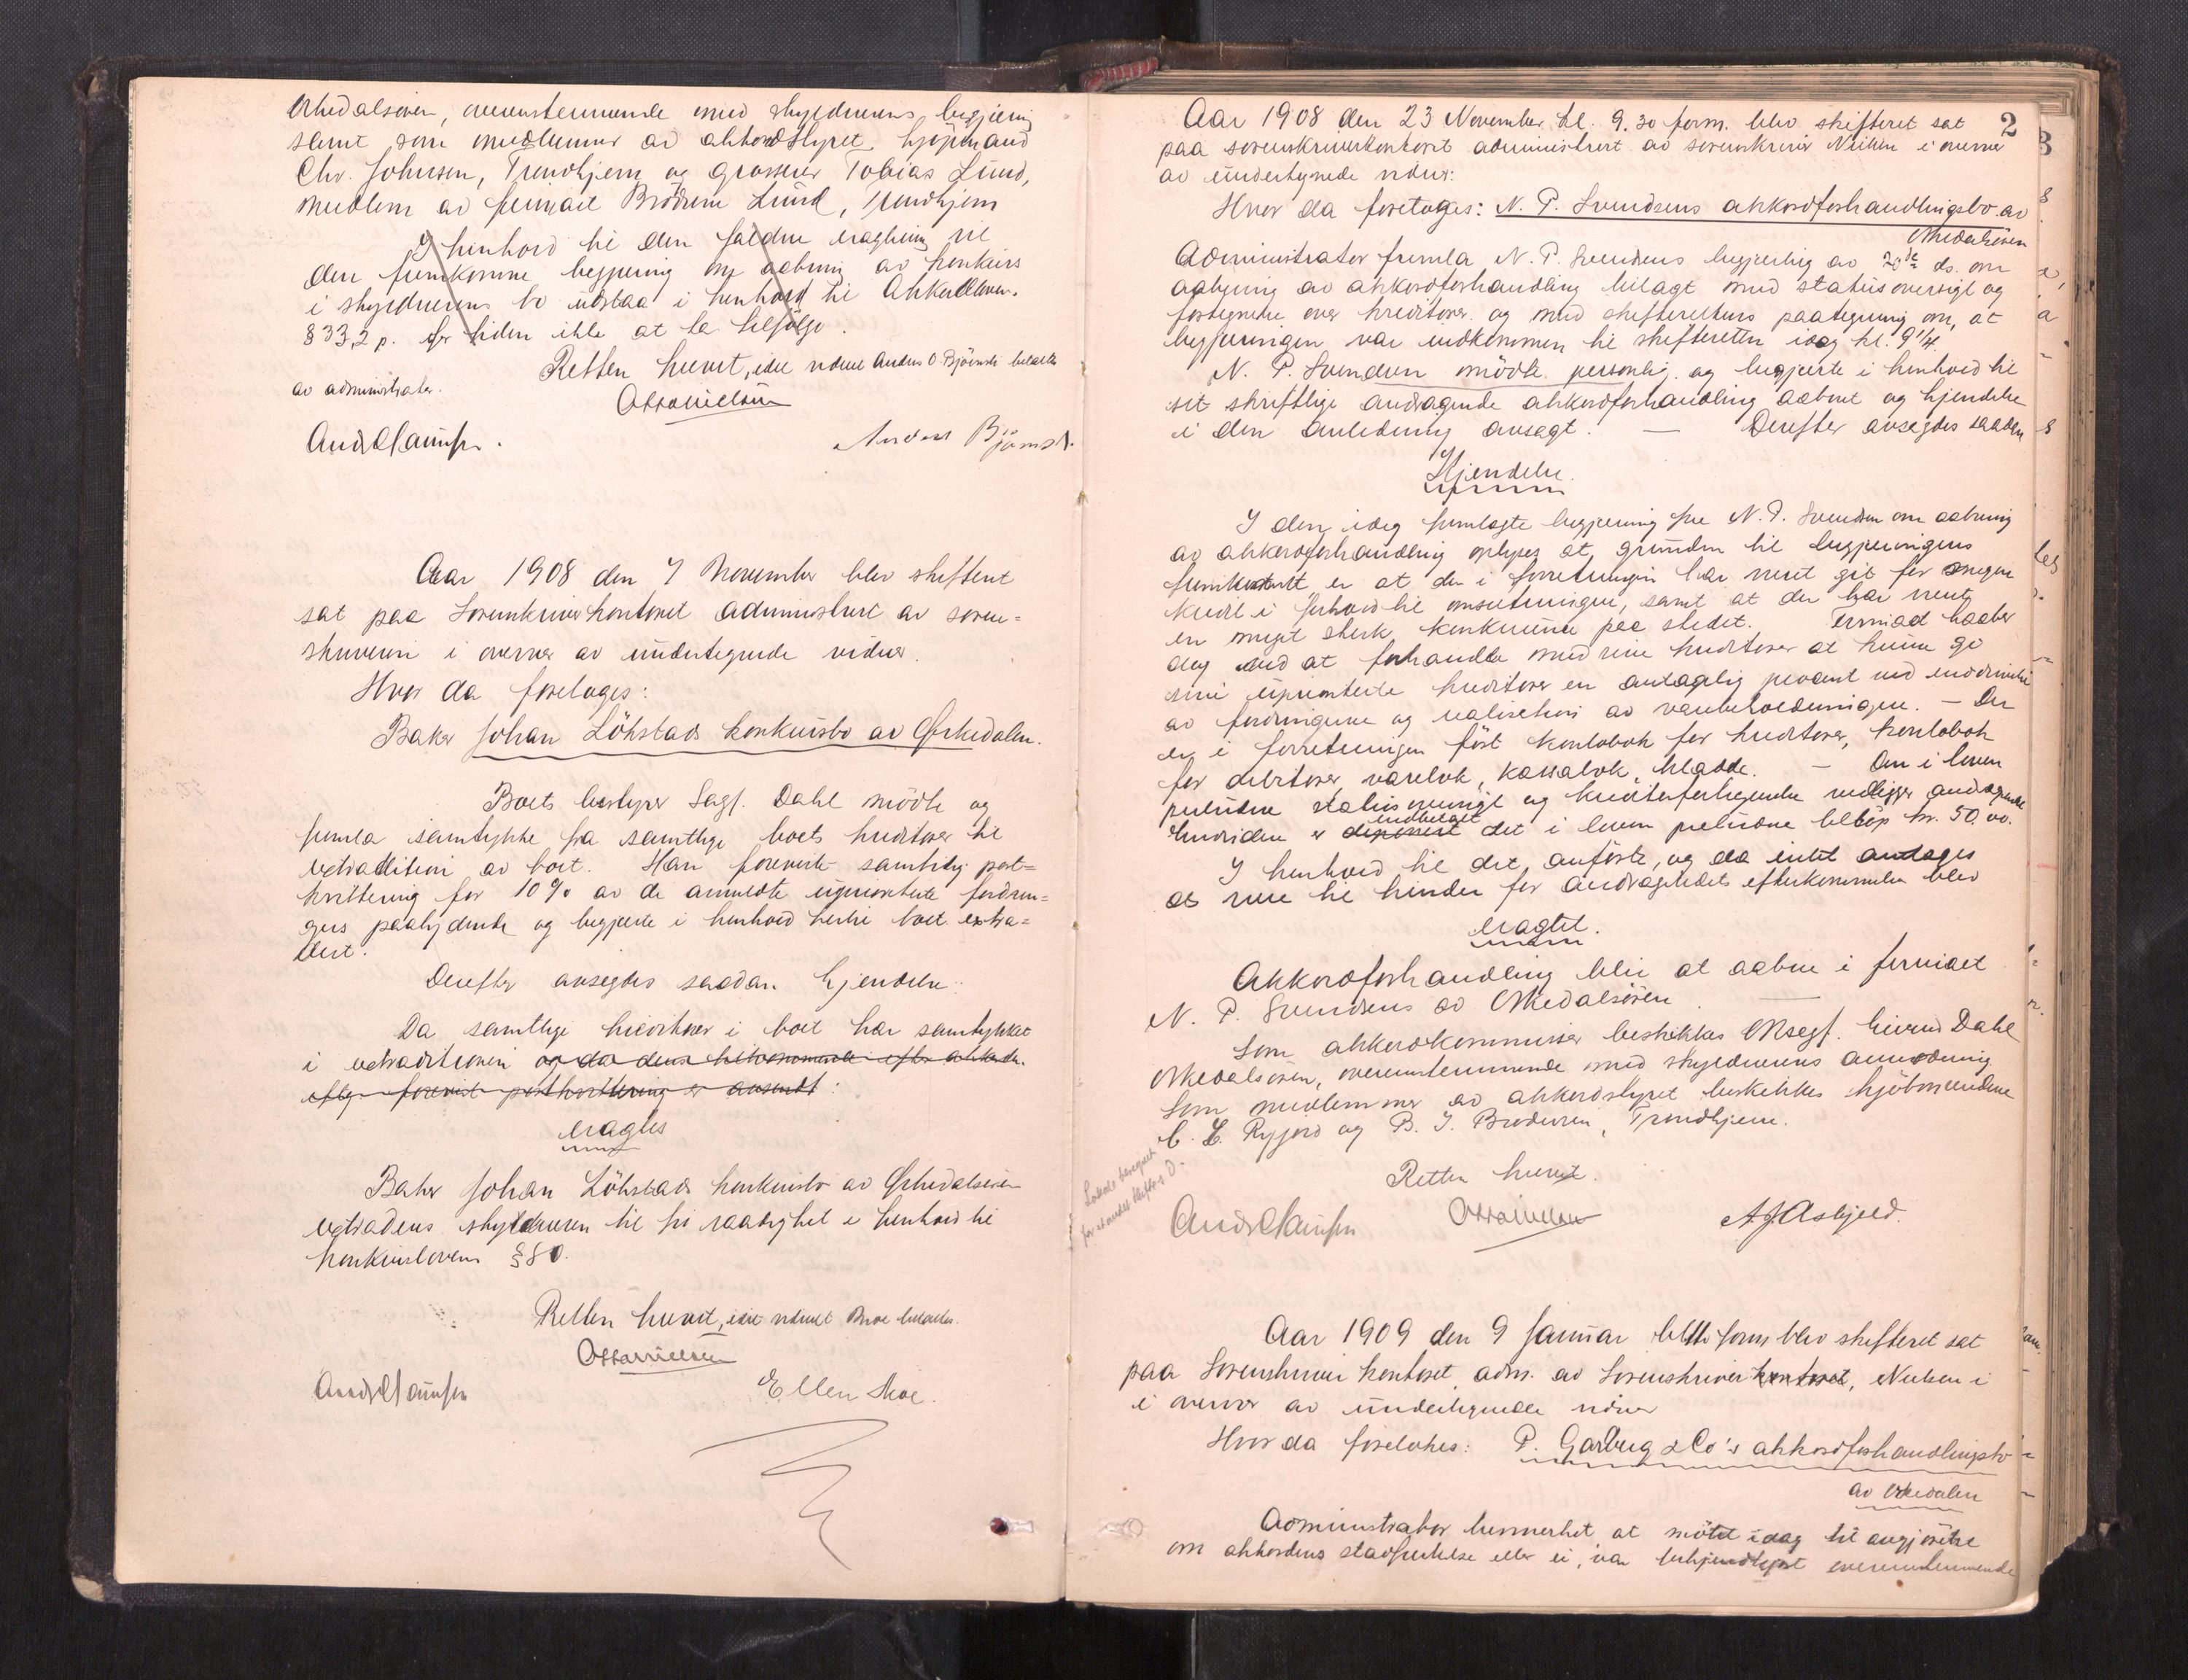 Orkedalsøren, overensstemmende med skyldnerens begjæring
samt som medlemmer av akkordstyret kjøpmand
Chr. Johnsen, Trondhjem og grosserer Tobias Lund,
medlem av firmaet Brödrene Lund, Trondhjem
I henhold til den faldne eragtning vil
den fremkomne begjæring om aabning av konkurs
i skyldnerens bo utstaa i henhold til Akkordloven
§ 33, 2 p. for tiden ikke at ta tilfölge.
Retten hævet, idet vidnet Anders O. Bjömdt betaltes
av administrator.
Anders Bjömst.
Aar 1908 den 7 November blev skifteret
sat paa Sorenskriverkontoret administrert av soren=
skriveren i overvær av undertegnede vidner.
Hvor da foretages:
Baker Johan Löhstads konkursbo av Orkedalen.
Boets bestyrer Sagf. Dahl mödte og
fremla samtykke fra samtlige boets kreditorer til
extradition av boet. Han foreviste samtidig post=
kvittering for 10% av de anmeldte uprioriterte fordrin=
gers paalydende og begjærte i henhold hertil boet extra=
dert.
Derefter avsagdes saadan kjendelse:
Da samtlige kreditorer i boet har samtykket
i extraditionen og da dens
efter forevist postkvittering er avsendt:
eragtes
Baker Johan Löhstads konkursbo av Orkedalsøren
extraderes skyldneren til fri raadighet i henhold til
konkurslovens § 80.
Retten hævet, idet vidnet Moe betaltes.
Ellen Moe.
2
Aar 1908 den 23 November kl. 9.30 form. blev skifteret sat
paa sorenskriverkontoret administrert av sorenskriver Nielsen i overvær
av undertegnede vidner:
Hvor da foretages: N. P. Svendsens akkordforhandlingsbo av
Orkedalsören
Administrator fremla N. P. Svendsens begjæring av 20de ds. om
aabning av akkordforhandling bilagt med statusoversigt og
fortegnelse over kreditorer og med skifterettens paategning om, at
begjæringen var indkommen til skifteretten idag kl. 9 1/4.
N. P. Svendsen mödte personlig og begjærte i henhold til
sit skriftlige andragende akkordforhandling aabnet og kjendelse
i den anledning avsagt. — Derefter avsagdes saadan
Kjendelse.
I den idag fremlagte begjæring fra N. P. Svendsen om aabning
av akkordforhandling oplyses at grunden til begjæringens
fremkomst er at der i forretningen har været git for megen
kredit i forhold til omsætningen, samt at der har været
en meget sterk konkurranse paa stedet. Firmaet haaber
dog ved at forhandle med sine kreditorer at kunne gi
sine uprioriterte kreditorer en antagelig procent ved inddrivelse
av fordringerne og realisation av varebeholdningen. — Der
er i forretningen fört kontobok for kreditorer, kontobok
for debitorer, varebok, kassabok, kladde. — Den i loven
paabudne statusoversigt og kreditorfortegnelse vedligger andragendet
indbetalt
Endvidere er deponert det i loven paabudne belöp kr. 50,00.
I henhold til det anförte, og da intet antages
at være til hinder for andragendets efterkommelse blev
eragtet.
Akkordforhandling blir at aabne i firmaet
N. P. Svendsens av Orkedalsören. —
Som akkordkommissær beskikkes O.R.sagf. Eivind Dahl
Orkedalsøren, overensstemmende med skyldnerens anmodning
Som medlemmer av akkordstyret beskikkes kjöbmændene
C. L. Ryjord og B. J. Brodersen, Trondhjem.
Retten hævet.
A. J. Asbjeld.
Aar 1909 den 9 Januar kl. 11 form blev skifteret sat
paa Sorenskriver kontoret adm. av Sorenskriver kontoret, Nielsen i
i overvær av undertegnede vidner
Hvor da foretokes: P. Garberg & Co's akkordforhandlingsbo
av Orkedalen
Administrator bemerket, at mötet idag til avgjörelse
om akkordens stadfæstelse eller ei, var bekjendtgjort overensstemmende